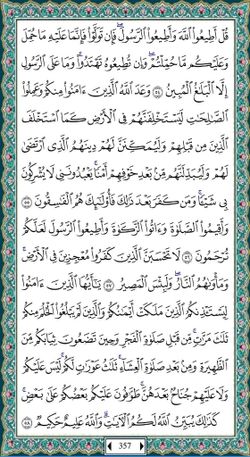 قُلْ أَطِيعُوا۟ ٱللَّهَ وَأَطِيعُوا۟ ٱلرَّسُولَ ۖ فَإِن تَوَلَّوْا۟ فَإِنَّمَا عَلَيْهِ مَا حُمِّلَ
وَعَلَيْكُم مَّا حُمِّلْتُمْ ۖ وَإِن تُطِيعُوهُ تَهْتَدُوا۟ ۚ وَمَا عَلَى ٱلرَّسُولِ
إِلَّا ٱلْبَلَٰغُ ٱلْمُبِينُ ٥٤ وَعَدَ ٱللَّهُ ٱلَّذِينَ ءَامَنُوا۟ مِنكُمْ وَعَمِلُوا۟
ٱلصَّٰلِحَٰتِ لَيَسْتَخْلِفَنَّهُمْ فِى ٱلْأَرْضِ كَمَا ٱسْتَخْلَفَ
ٱلَّذِينَ مِن قَبْلِهِمْ وَلَيُمَكِّنَنَّ لَهُمْ دِينَهُمُ ٱلَّذِى ٱرْتَضَىٰ
لَهُمْ وَلَيُبَدِّلَنَّهُم مِّنۢ بَعْدِ خَوْفِهِمْ أَمْنًا ۚ يَعْبُدُونَنِى لَا يُشْرِكُونَ
بِى شَيْـًٔا ۚ وَمَن كَفَرَ بَعْدَ ذَٰلِكَ فَأُو۟لَٰٓئِكَ هُمُ ٱلْفَٰسِقُونَ ٥٥
وَأَقِيمُوا۟ ٱلصَّلَوٰةَ وَءَاتُوا۟ ٱلزَّكَوٰةَ وَأَطِيعُوا۟ ٱلرَّسُولَ لَعَلَّكُمْ
تُرْحَمُونَ ٥٦ لَا تَحْسَبَنَّ ٱلَّذِينَ كَفَرُوا۟ مُعْجِزِينَ فِى ٱلْأَرْضِ ۚ
وَمَأْوَىٰهُمُ ٱلنَّارُ ۖ وَلَبِئْسَ ٱلْمَصِيرُ ٥٧ يَٰٓأَيُّهَا ٱلَّذِينَ ءَامَنُوا۟
لِيَسْتَـْٔذِنكُمُ ٱلَّذِينَ مَلَكَتْ أَيْمَٰنُكُمْ وَٱلَّذِينَ لَمْ يَبْلُغُوا۟ ٱلْحُلُمَ مِنكُمْ
ثَلَٰثَ مَرَّٰتٍ ۚ مِّن قَبْلِ صَلَوٰةِ ٱلْفَجْرِ وَحِينَ تَضَعُونَ ثِيَابَكُم مِّنَ
ٱلظَّهِيرَةِ وَمِنۢ بَعْدِ صَلَوٰةِ ٱلْعِشَآءِ ۚ ثَلَٰثُ عَوْرَٰتٍ لَّكُمْ ۚ لَيْسَ عَلَيْكُمْ
وَلَا عَلَيْهِمْ جُنَاحٌۢ بَعْدَهُنَّ ۚ طَوَّٰفُونَ عَلَيْكُم بَعْضُكُمْ عَلَىٰ بَعْضٍ ۚ
كَذَٰلِكَ يُبَيِّنُ ٱللَّهُ لَكُمُ ٱلْـَٔايَٰتِ ۗ وَٱللَّهُ عَلِيمٌ حَكِيمٌ ٥٨
357